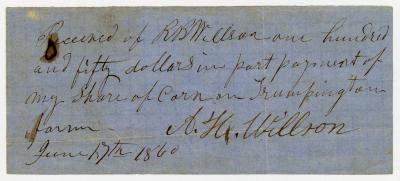 Received of R B Willson one hundred
and fifty dollars in part payment of
my Share of Corn on Trumpington
farm A. H. Willson
June 17th 1860